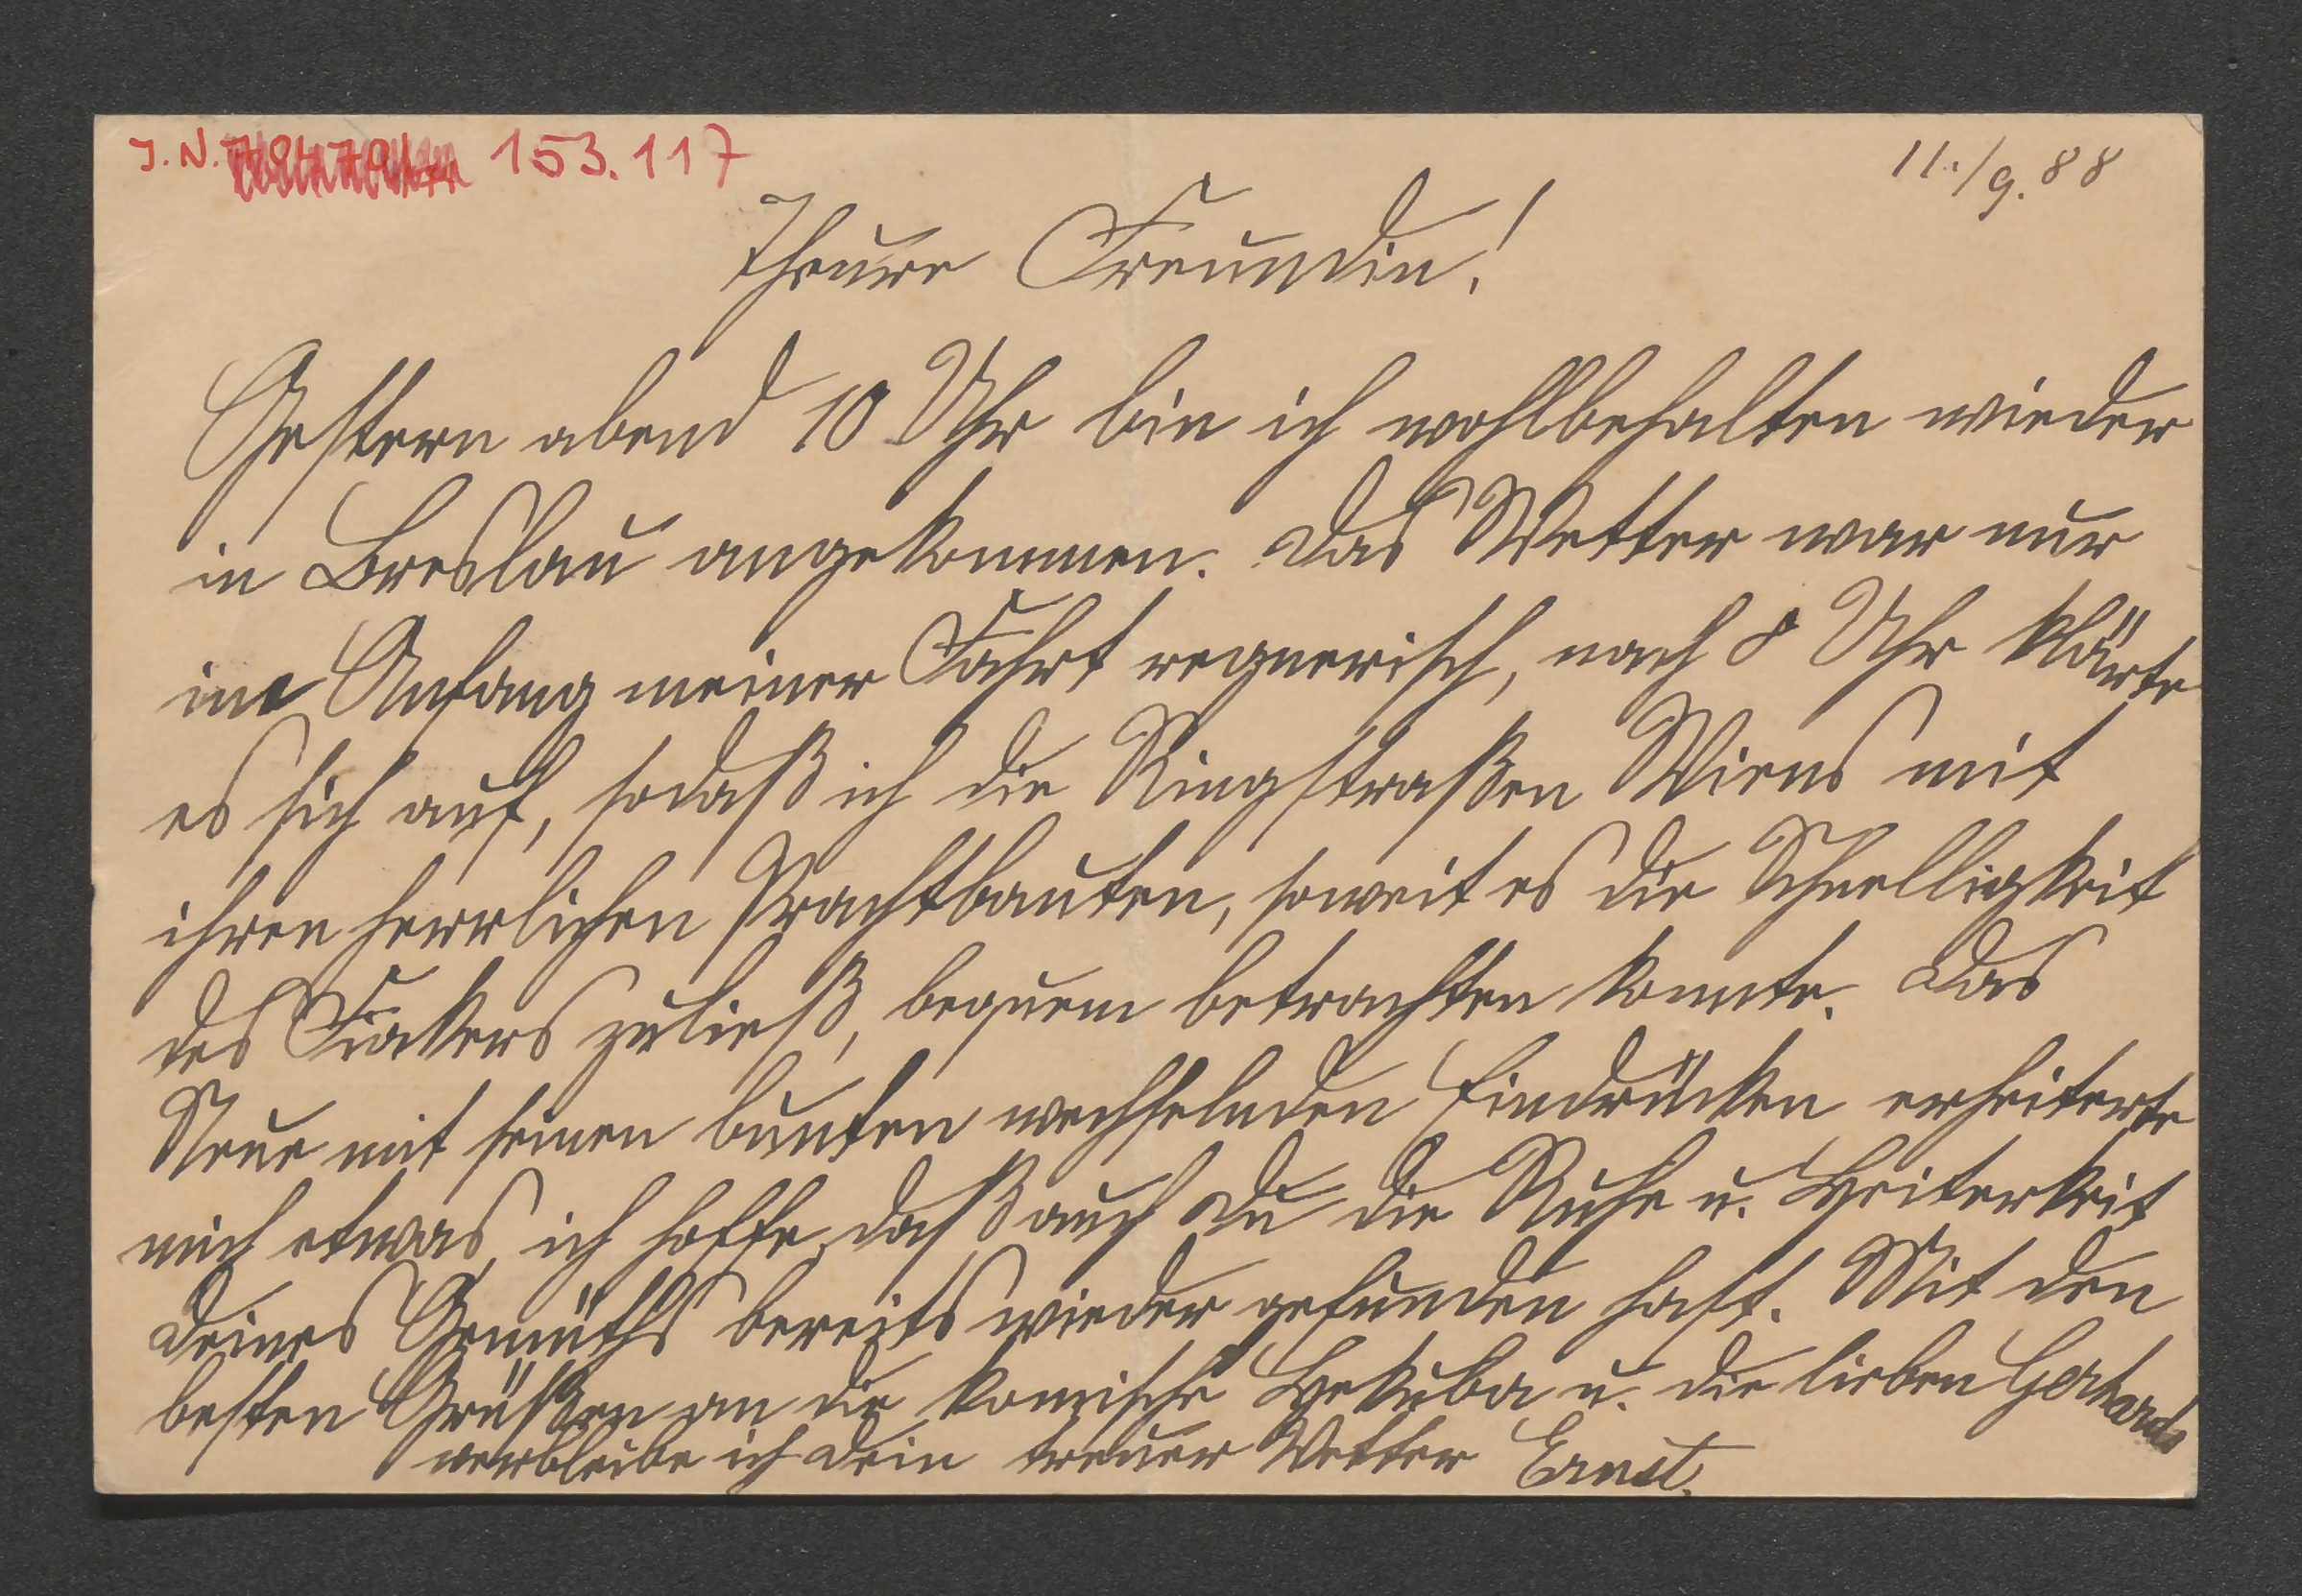 J. N. 153.117
11./9. 88
Theure Freundin!
Gestern abend 10 Uhr bin ich wohlbehalten wieder
in Breslau angekommen. Das Wetter war nur
im Anfang meiner Fahrt regnerisch, nach 8 Uhr klärte
es sich auf, sodaß ich die Ringstraßen Wiens mit
ihren herrlichen Prachtbauten, soweit es die Schnelligkeit
des Fiakers zuließ, bequem betrachten konnte. Das
Neue mit seinen bunten wechselnden Eindrücken erheiterte
mich etwas, ich hoffe, daß auch Du die Ruhe u. Heiterkeit
Deines Gemüths bereits wieder gefunden hast. Mit den
besten Grüßen an die komische Hekuba u. die lieben Gerhards
verbleibe ich Dein treuer Vetter Ernst.